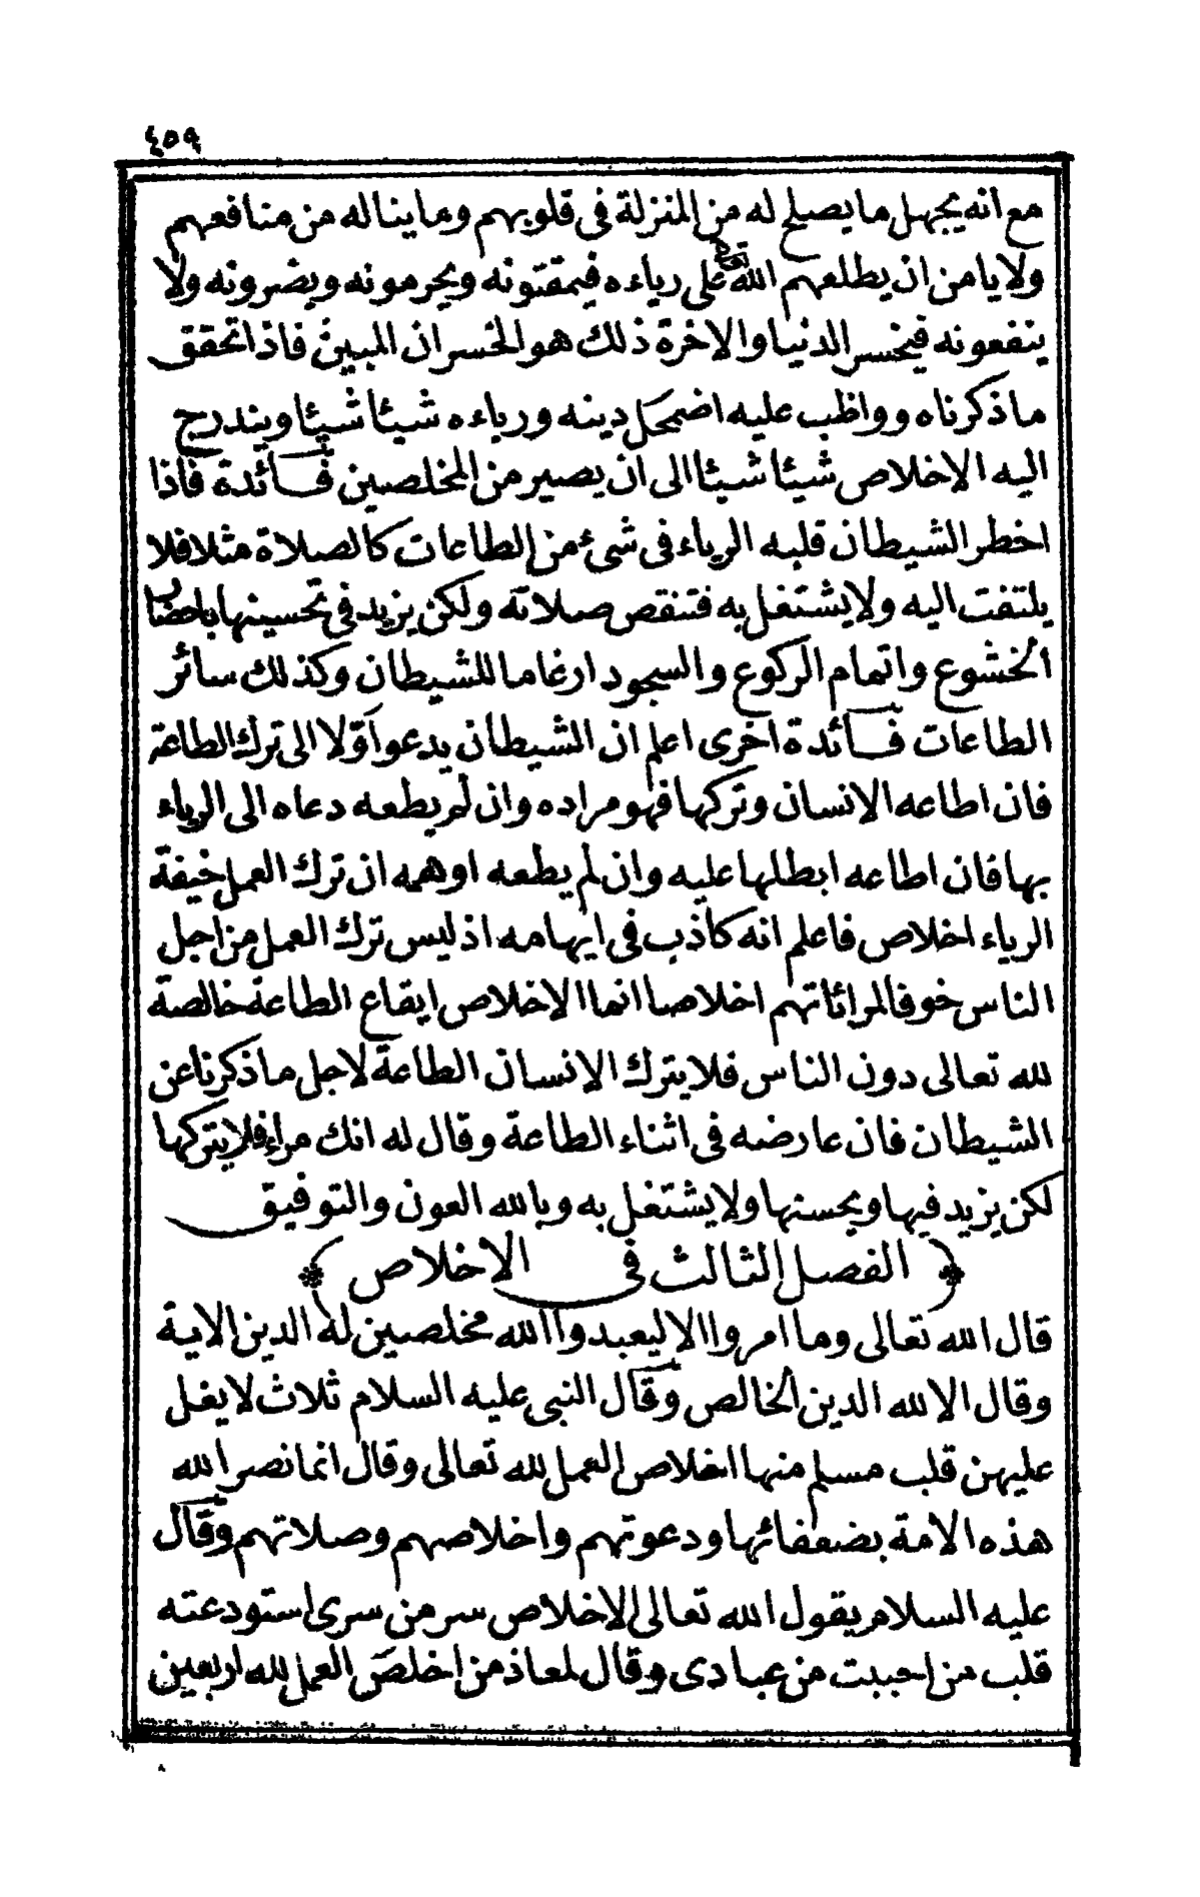 ٤٥٩
مع انه يجهل ما يصلح له من المنزلة فى قلوبهم وما يناله من منافعهم
ولا يامن ان يطلعهم الله تعالى على رياءه فيمقتونه ويحرمونه ويضرونه ولا
ينفعونه فيخسر الدنيا والاخرة ذلك هو الخسران المبين فاذا تحقق
ما ذكرناه وواظب عليه اضمحل دينه ورياءه شيئا شيئا ويندرج
اليه الاخلاص شيئا شيئا الى ان يصير من المخلصين فائدة فاذا
اخطر الشيطان قلبه الرياء فى شئ من الطاعات كالصلاة مثلا فلا
يلتفت اليه ولا يشتغل به فتنقص صلاته ولكن يزيد فى تحسينها باحضار
الخشوع واتمام الركوع والسجود ارغاما للشيطان وكذلك سائر
الطاعات فائدة اخرى اعلم ان الشيطان يدعو اوّلا الى ترك الطاعة
فان اطاعه الانسان وتركها فهو مراده وان لم يطعه دعاه الى الرياء
بها فان اطاعه ابطلها عليه وان لم يطعه اوهمه ان ترك العمل خيفة
الرياء اخلاص فاعلم انه كاذب فى ايهامه اذ ليس ترك العمل من اجل
الناس خوفا لمرائاتهم اخلاصا انما الاخلاص ايقاع الطاعة خالصة
لله تعالى دون الناس فلا يترك الانسان الطاعة لاجل ما ذكرنا عن
الشيطان فان عارضه فى اثناء الطاعة وقال له انك مراء فلا يتركها
لكن يزيد فيها ويحسنها ولا يشتغل به وبالله العون والتوفيق
﴿ الفصل الثالث فى الاخلاص ﴾
قال الله تعالى وما امروا الا ليعبدوا الله مخلصين له الدين الاية
وقال الا لله الدين الخالص وقال النبى عليه السلام ثلاث لا يغل
عليهن قلب مسلم منها اخلاص العمل لله تعالى وقال انما نصر الله
هذه الامة بضعفائها ودعوتهم واخلاصهم وصلاتهم وقال
عليه السلام يقول الله تعالى الاخلاص سر من سرى استودعته
قلب من احببت من عبادى وقال لمعاذ من اخلص العمل لله اربعين